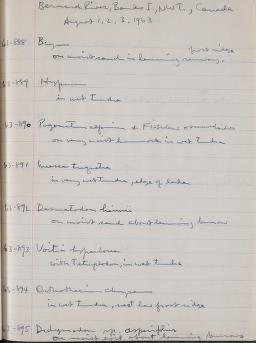 Bernard River, Banks I., N.W.T., Canada
August 1, 2, 3, 1963
63-888 Bryum
frost ridge
on moist sand in lemming runway,
63-889 Hypnum
in wet tundra
63-890 Pogonatum alpinum & Fissidens osmundoides
on very moist hummock in wet tundra
63-891 Meesea triquetra
in very wet tundra, edge of lake
63-892 Desmatodon heimii
on moist sand about lemming burrow
63-893 Voitia hyperborea
with Tetraplodon, in wet tundra
63-894 Orthothecium chryseum
in wet tundra, near low frost ridge
63-895 Didymodon asperifolius
on moist soil about lemming burrows